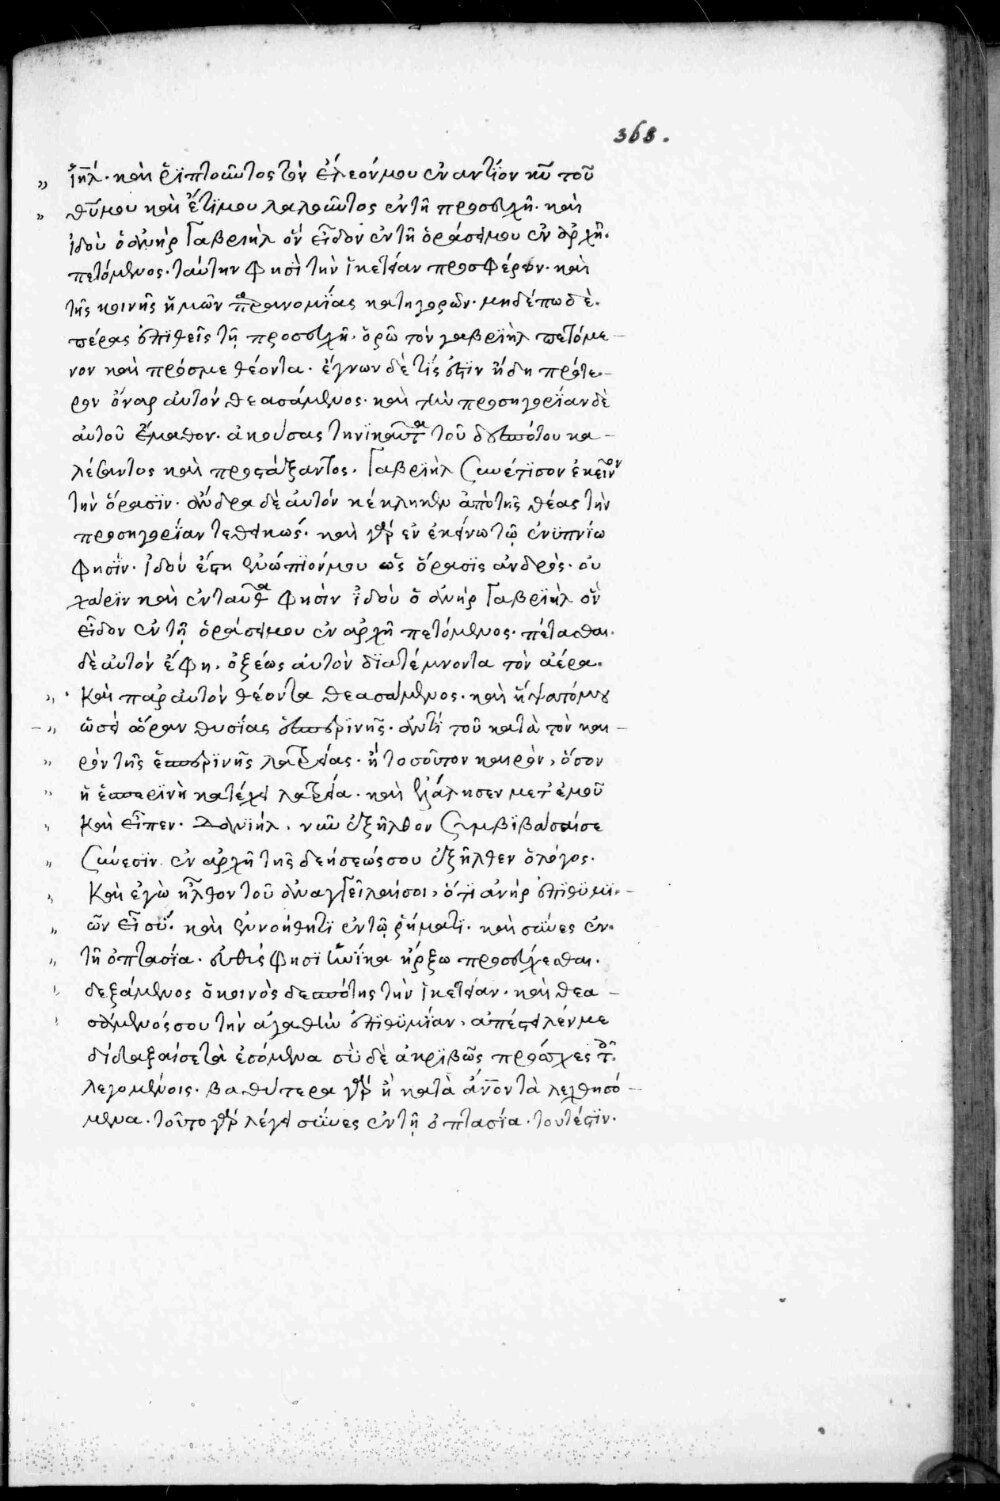 368.
„ ἰη̅λ· καὶ ῥιπτοῦντος τὸν ἔλεόν μου ἐναντίον κ̅υ̅ τοῦ
„ θ̅υ̅ μου καὶ ἔτι μου λαλοῦντος ἐν τῆ προσευχῆ· καὶ
ἰδοὺ ὁ ἀνὴρ Γαβριὴλ ὃν εἶδον ἐν τῆ ὁράσει μου ἐν ἀρχῆ·
πετόμενος· ταύτην φησὶ τὴν ἱκετείαν προσφέρων· καὶ
τῆς κοινῆς ἡμῶν παρανομίας κατηγορῶν· μηδέπω δὲ·
πέρας ἐπιθεὶς τῆ προσευχῆ· ὁρῶ τὸν γαβριὴλ πετόμε-
νον καὶ πρός με θέοντα· ἔγνων δὲ τίς ἐστιν ἤδη πρότε-
ρον ὄναρ αὐτὸν θεασάμενος· καὶ τὴν προσηγορίαν δὲ
αὐτοῦ ἔμαθον· ἀκούσας τηνικαῦτα τοῦ δεσπότου κα-
λέσαντος καὶ προστάξαντος· Γαβριὴλ συνέτισον ἐκεῖνον
τὴν ὅρασιν· ἄνδρα δὲ αὐτὸν κέκληκεν ἀπὸ τῆς θέας τὴν
προσηγορίαν τεθεικώς· καὶ γὰρ ἐν ἐκείνω τῶ ἐνυπνίω
φησΐν· ἰδοὺ ἔστη ἐνώπιόν μου ὡς ὅρασις ἀνδρός· οὗ
χάριν καὶ ἐνταῦθα φησὶν ἰδοὺ ὁ ἀνὴρ Γαβριὴλ ὃν
εἶδον ἐν τῆ ὁράσει μου ἐν ἀρχῆ πετόμενος· πέτασθαι·
δὲ αὐτὸν ἔφη· ὀξέως αὐτὸν διατέμνοντα τὸν ἀέρα·
„ καὶ παρ αὐτὸν θέοντα θεασάμενος· καὶ ἥψατό μου
„ ὡσεὶ ὥραν θυσίας ἑσπερινῆς· ἀντὶ τοῦ κατὰ τὸν και-
„ ρὸν τῆς ἑσπερινῆς λατρείας· ἢ τοσοῦτον καιρὸν, ὅσον
„ ἡ ἑσπερινὴ κατέχει λατρεία· καὶ ἐλάλησεν μετ ἐμοῦ
„ καὶ εἶπεν· Δανιὴλ, νῦν ἐξῆλθον συμβιβάσαι σε
„ σύνεσιν ἐν ἀρχῆ τῆς δεήσεώς σου ἐξῆλθεν ὁ λόγος·
„ Καὶ ἐγὼ ἦλθον τοῦ ἀναγγεῖλαί σοι, ὅτι ἀνὴρ ἐπιθυμι-
„ ῶν εἶ σύ· καὶ ἐννοήθητι ἐν τῶ ῥήματι· καὶ σύνες ἐν·
„ τῆ ὀπτασία· εὐθὺς φησὶ ἡνίκα ἤρξω προσεύχεσθαι·
δεξάμενος ὁ κοινὸς δεσπότης τὴν ἱκετείαν· καὶ θεα-
σάμενός σου τὴν ἀγαθὴν ἐπιθυμίαν, ἀπέστειλέν με
διδάξαί σε τὰ ἐσόμενα σὺ δὲ ἀκριβῶς πρόσχες τοῖς
λεγομένοις· βαθύτερα γὰρ ἢ κατὰ ἄν̅ον τὰ λεχθησό-
μενα· τοῦτο γὰρ λέγει σύνες ἐν τῆ ὀπτασία· τουτέστιν·